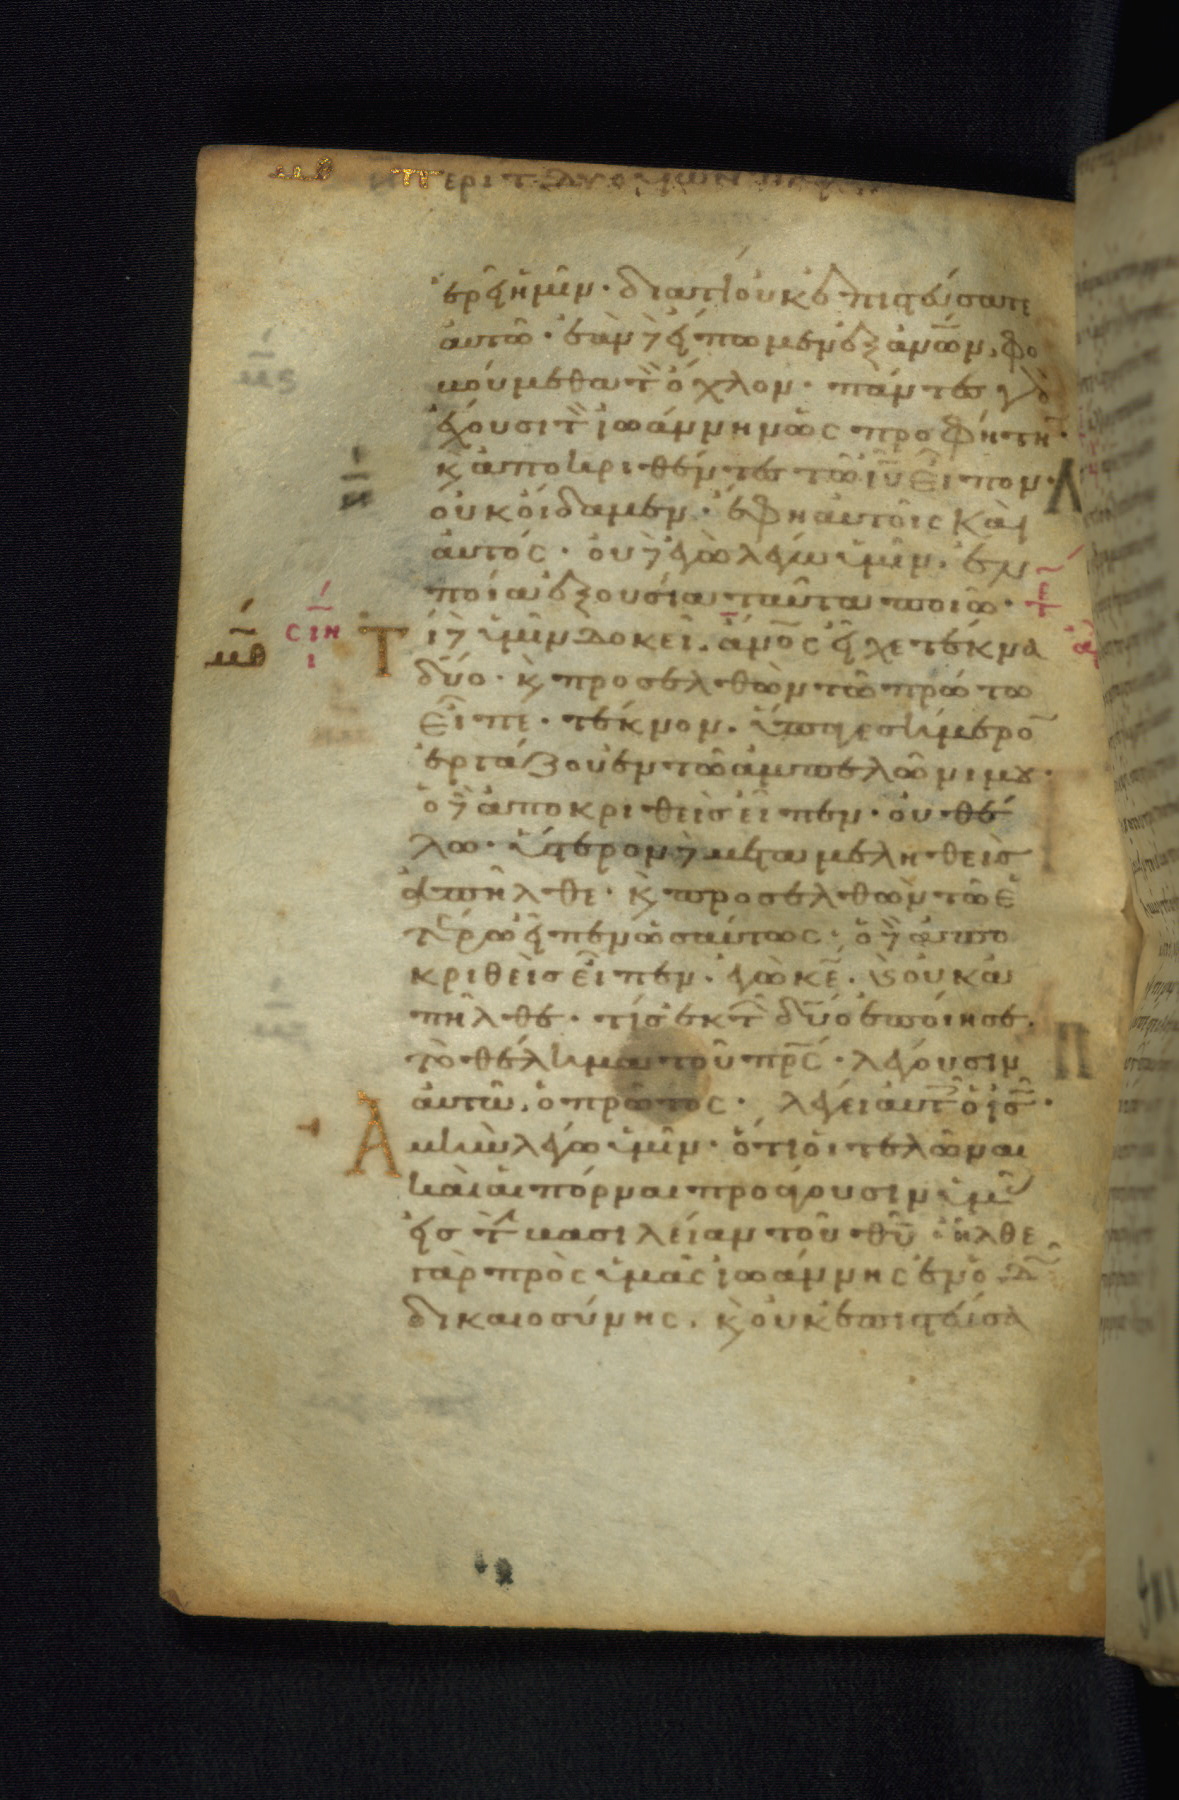 μθ περι τ δυο υιων
ἐρεῖ ἡμῖν· διατί οὐκ ἐπιστεύσατε
αὐτῶ· ἐὰν δὲ εἴπωμεν ἐξ ἀν̅ω̅ν, φο
βούμεθα τὸν ὄχλον· πάντες γὰρ
ἔχουσι τὸν ἰωάννην ὡς προφήτην·
κ̀ ἀποκριθέντες τῶ ιυ̅ εἶπον·
οὐκ οἴδαμεν· ἔφη αὐτοῖς καὶ
αὐτός· οὐδὲ ἐγὼ λέγω ὑμῖν· ἐν
ποία ἐξουσία ταῦτα ποιῶ· τε̅
μθ σιη ι Τί δὲ ὑμῖν δοκεῖ. ἄνο̅ς εἶχε τέκνα
δύο· κ̀ προσελθὼν τῶ πρώτω
εἶπε· τέκνον. ὕπαγε σήμερο̅
ἐργάζου ἐν τῶ ἀμπελῶνι μου·
ὁ δὲ ἀποκριθεὶς εἶπεν· οὐ θέ
λω· ὕστερον δὲ μεταμεληθεὶς
ἀπῆλθε· κ̀ προσελθὼν τῶ ἑ
τέρω εἶπεν ὡσαύτως· ὁ δὲ ἀπο
κριθεὶς εἶπεν· ἐγὼ κε̅· κ̀ οὐκ ἀ
πῆλθε· τίς ἐκ τῶν δύο ἐποίησε
τὸ θέλημα τοῦ πρ̅ς· λέγουσιν
αὐτῶ, ὁ πρῶτος· λέγει αὐτοῖς ὁ ις̅·
Ἀμὴν λέγω ὑμῖν· ὅτι οἱ τελῶναι
καὶ αἱ πόρναι προάγουσιν ὑμᾶς
εἰς τὴν βασιλείαν τοῦ θυ̅· ἦλθε
γὰρ πρὸς ὑμᾶς ἰωάννης ἐν ὁδῶ
δικαιοσύνης. κ̀ οὐκ ἐπιστεύσα